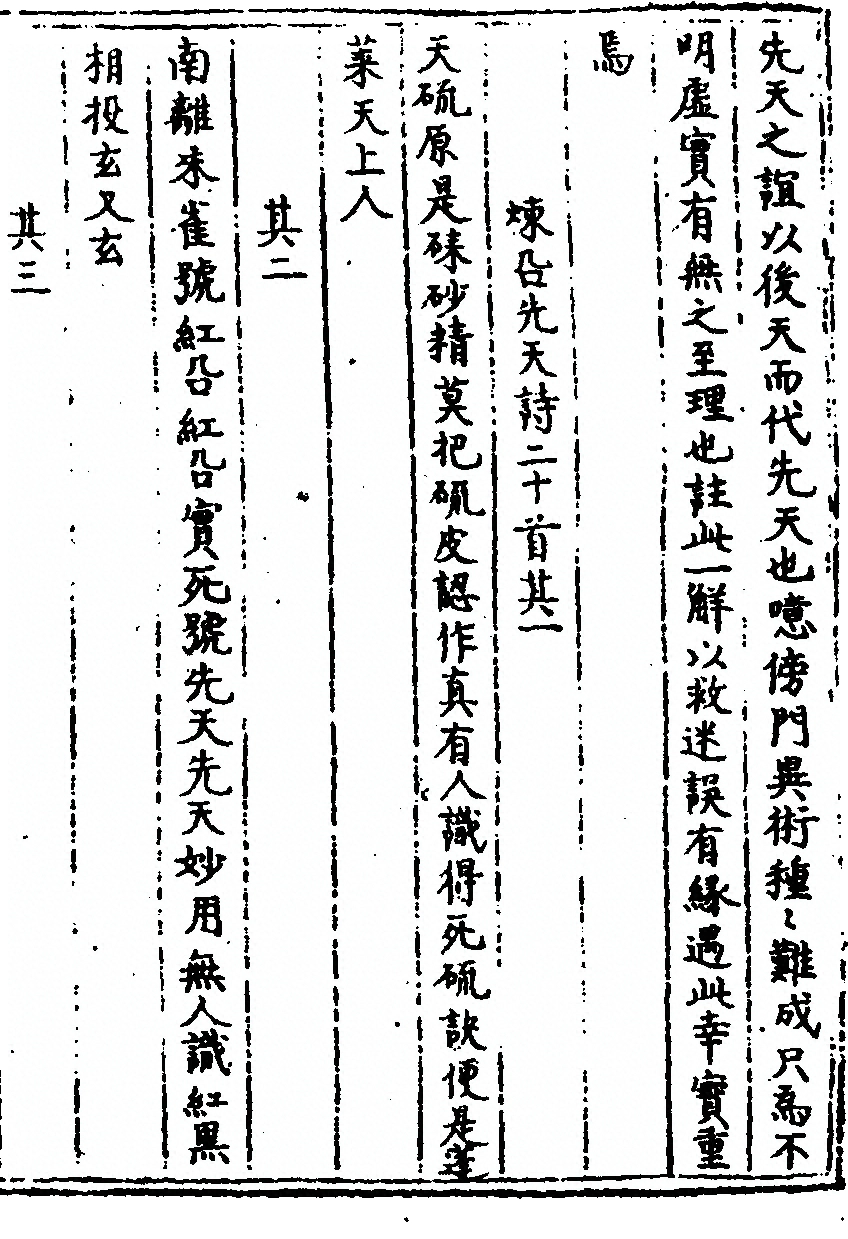 先天之誼以後天而代先天也噫傍門異術種〻難成只為不
明虛實有無之至理也註此一觧以救迷誤有緣遇此幸寶重
焉
煉㕣先天詩二十首其一
天硫原是硃砂精莫把硫皮認作真有人識得死硫訣便是蓬
萊天上人
其二
南離朱雀號紅㕣紅㕣實死號先天先天妙用無人識紅黑
相投玄又玄
其三